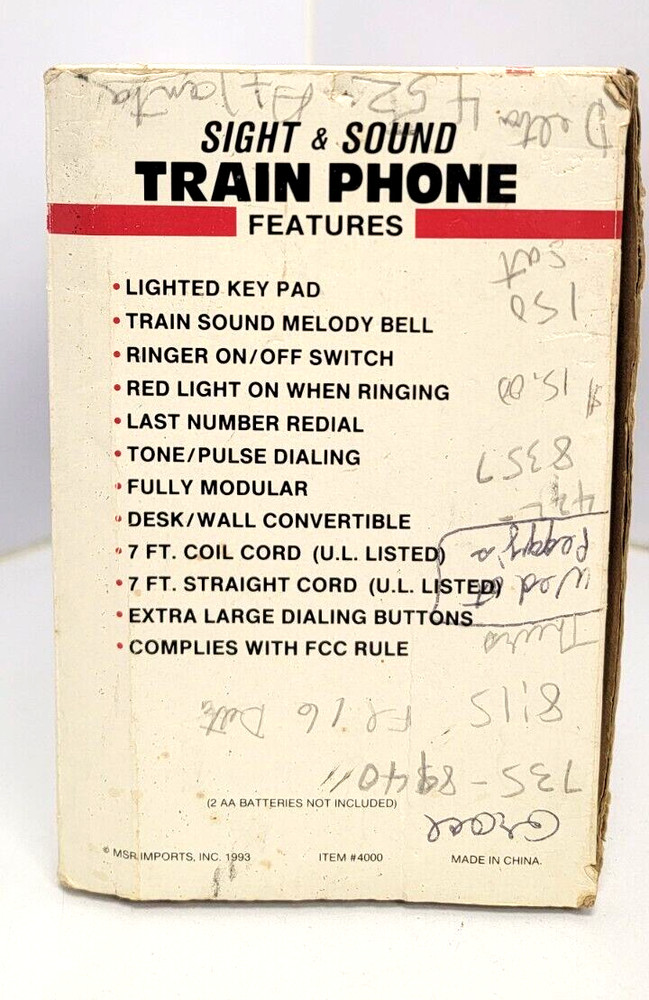 Delta 452 Atlanta
SIGHT & SOUND
TRAIN PHONE
FEATURES
Sat
150
$15.00
8357
• LIGHTED KEY PAD
• TRAIN SOUND MELODY BELL
• RINGER ON/OFF SWITCH
• RED LIGHT ON WHEN RINGING
• LAST NUMBER REDIAL
• TONE/PULSE DIALING
• FULLY MODULAR
• DESK/WALL CONVERTIBLE
• 7 FT. COIL CORD (U.L. LISTED)
• 7 FT. STRAIGHT CORD (U.L. LISTED)
• EXTRA LARGE DIALING BUTTONS
• COMPLIES WITH FCC RULE
Wed at
Peggy's
Thurs
8:15
735-8940
Grace
(2 AA BATTERIES NOT INCLUDED)
© MSR IMPORTS, INC. 1993 ITEM #4000 MADE IN CHINA.